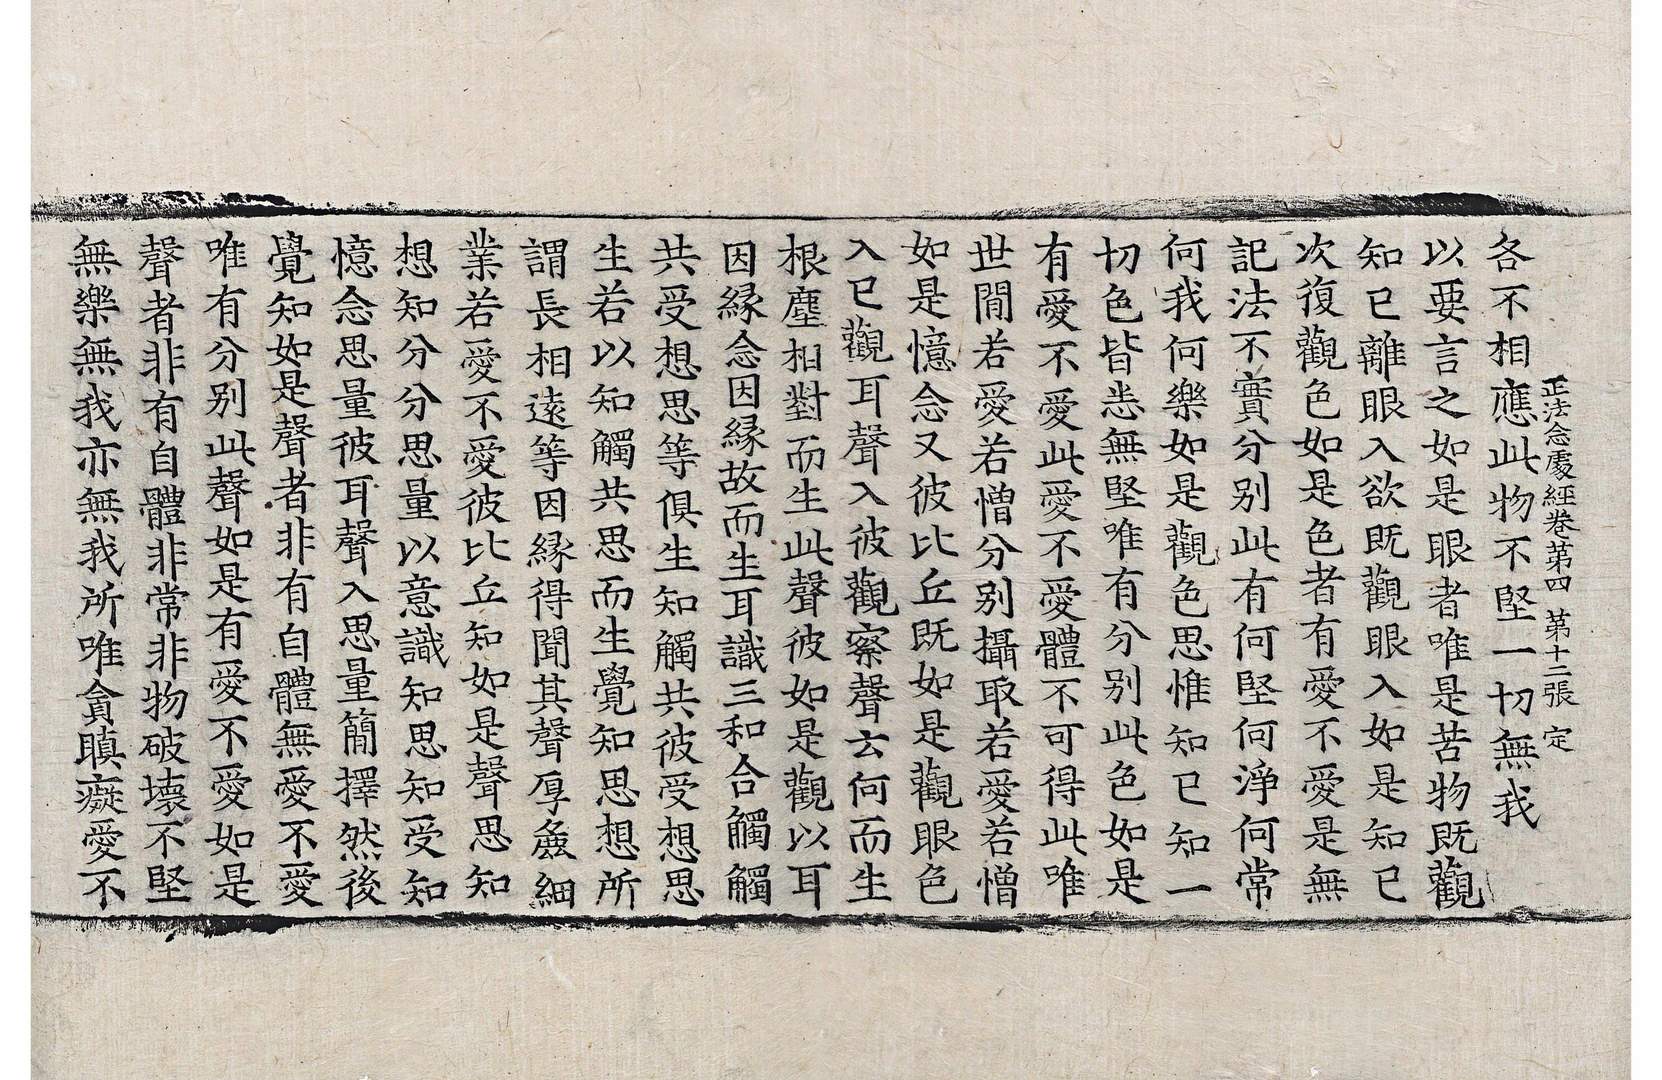 正法念處經卷第四 第十二張 定
各不相應此物不堅一切無我
以要言之如是眼者唯是苦物既觀
知已離眼入欲既觀眼入如是知已
次復觀色如是色者有愛不愛是無
記法不實分別此有何堅何淨何常
何我何樂如是觀色思惟知已知一
切色皆悉無堅唯有分別此色如是
有愛不愛此愛不愛體不可得此唯
世間若愛若憎分別攝取若愛若憎
如是憶念又彼比丘既如是觀眼色
入已觀耳聲入彼觀察聲云何而生
根塵相對而生此聲彼如是觀以耳
因緣念因緣故而生耳識三和合觸觸
共受想思等俱生知觸共彼受想思
生若以知觸共思而生覺知思想所
謂長相遠等因緣得聞其聲厚麁細
業若愛不愛彼比丘知如是聲思知
想知分分思量以意識知思知受知
憶念思量彼耳聲入思量簡擇然後
覺知如是聲者非有自體無愛不愛
唯有分別此聲如是有愛不愛如是
聲者非有自體非常非物破壞不堅
無樂無我亦無我所唯貪瞋癡愛不